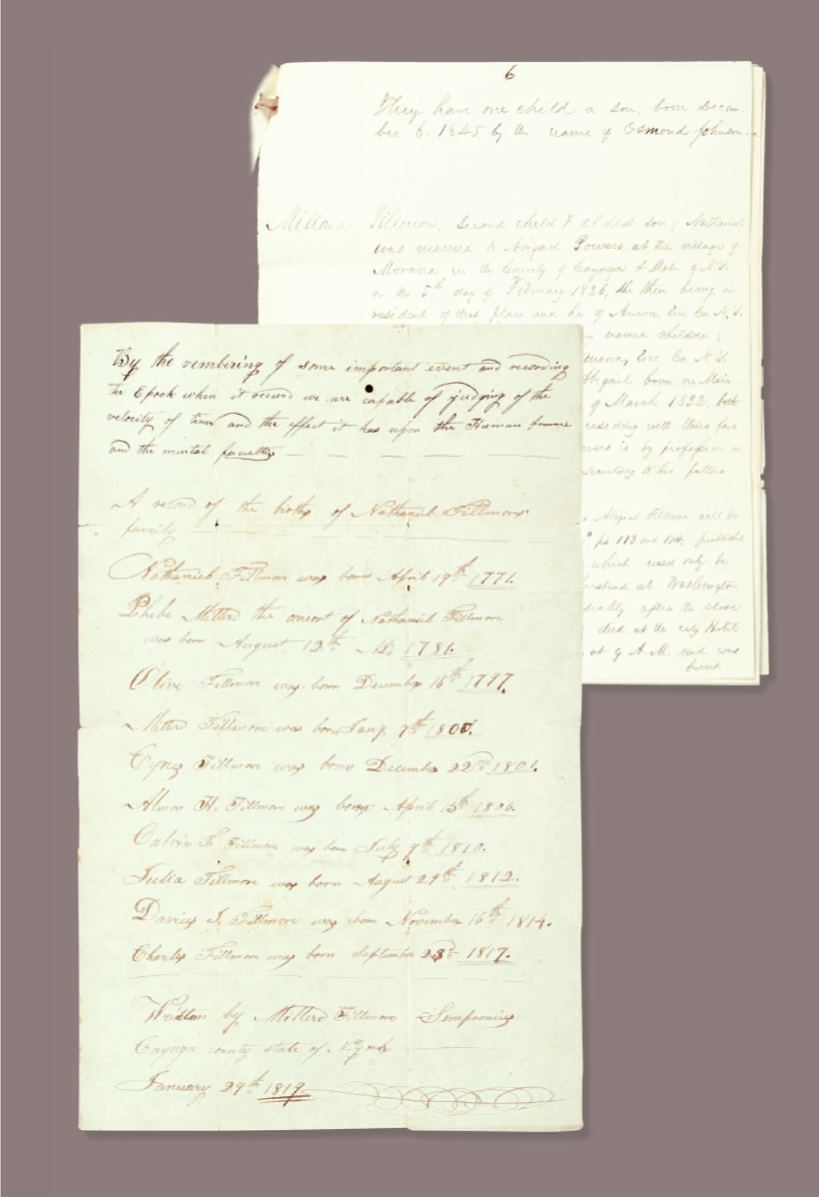 6
They have one child a son, born Decem-
ber 6. 1845 by the name of Osmond Johnson.
Millard Fillmore, Second child & eldest son of Nathaniel
was married to Abigail Powers, at the village of
Moravia in the County of Cayuga & State of N.Y.
on the 5th day of February 1826, she then being a
resident of that place and he of Aurora, Erie Co. N.Y.
named children;
Erie Co. N.Y.
Abigail born on
of March 1832. both
residing with their fa-
is by profession a
secretary to his father
Abigail Fillmore will be
ps 113 and 114, publish
which need only be
at Washington
after the close
died at the city Hotel
at 9 A.M. and was
buried
By the rembering of some important event and recording
the Epoch when it record we are capable of judging of the
velocity of time and the effect it has upon the Human frame
and the mental faculties
A record of the births of Nathaniel Fillmores
family
Nathaniel Fillmore was born April 19th 1771.
Phebe Millerd the consort of Nathaniel Fillmore
was born August 12th AD 1781.
Olive Fillmore was born December 16th 1797.
Millerd Fillmore was born Jany. 7th 1800.
Cyrus Fillmore was born December 22nd 1801.
Almon H. Fillmore was born April 13th 1806.
Calvin T. Fillmore was born July 9th 1810.
Julia Fillmore was born August 29th 1812.
Darius I. Fillmore was born November 16th 1814.
Charles Fillmore was born September 23d 1817.
Written by Millerd Fillmore Sempronius
Cayuga county state of N. York
January 29th 1819.